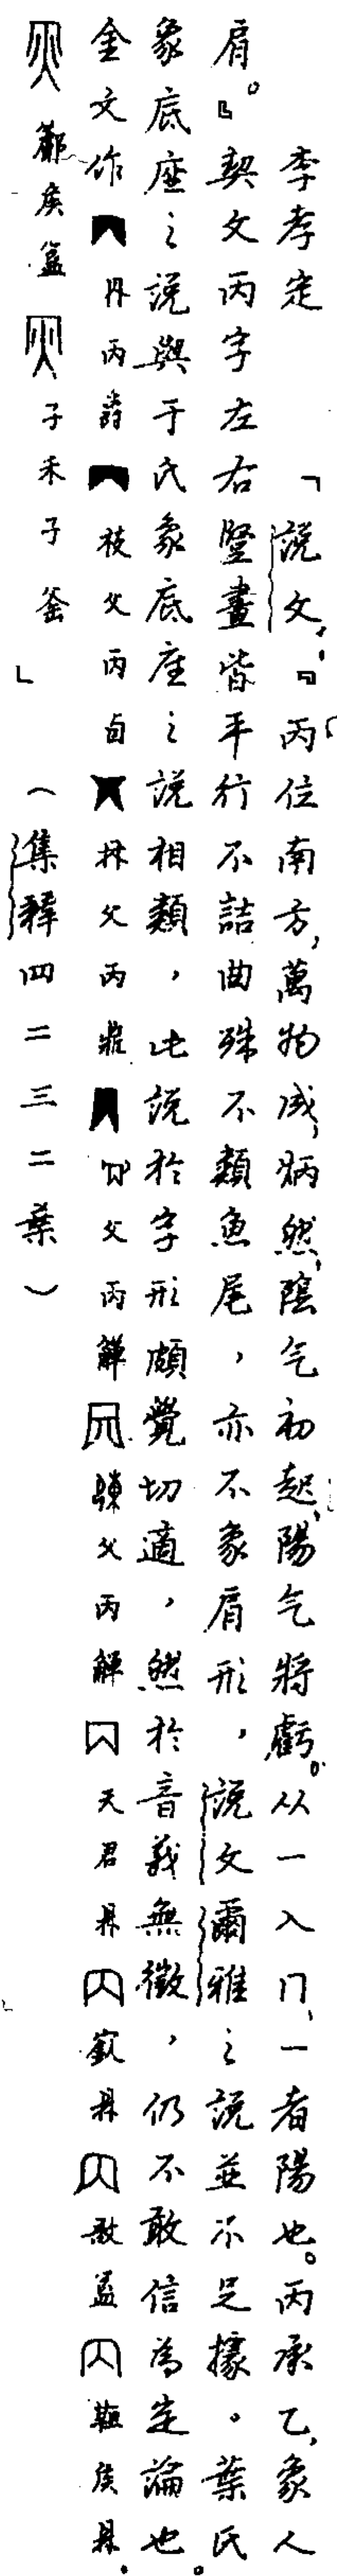 李孝定　「說文：『丙位南方，萬物成，炳然，陰气初起，陽气將虧。从一入冂，一者陽也。丙承乙，象人
肩。』契文丙字左右豎畫皆平行不詰曲殊不類魚尾，亦不象肩形，說文爾雅之說並不足據。葉氏
象底座之說與于氏象底座之說相類，此說於字形頗覺切適，然於音義無徵，仍不敢信為定論也。
金文作 丹丙爵 父丙卣 父丙鼎 父丙觶 父丙觶 天君鼎 鼎 蓋 侯鼎
鄘侯簋 子禾子釜」（集釋四二三二葉）